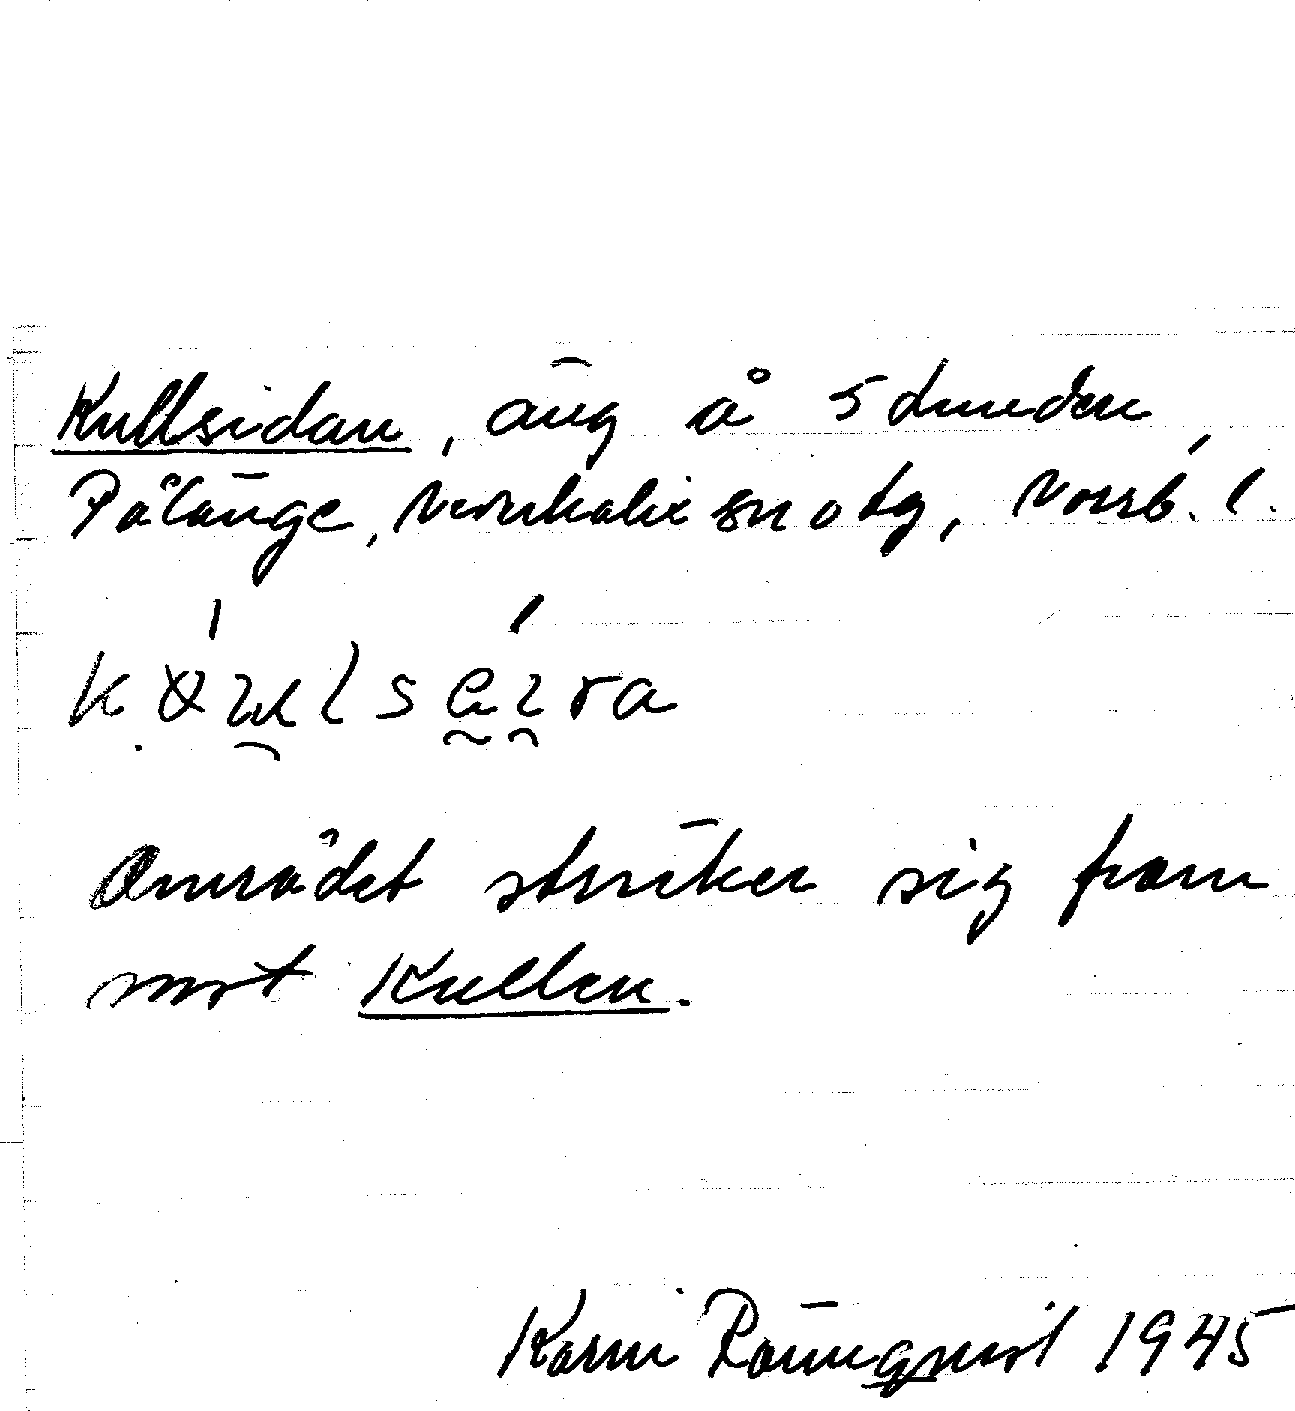 Kullsidan, äng å Stunden,
Pålänge, Nederkalix sn o tg, Norrb. l.
Området sträcker sig fram
mot Kullen.
Karin Rönnqvist 1945